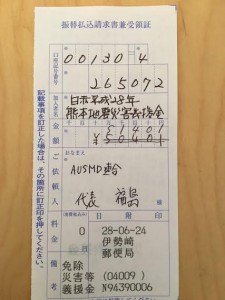 振替払込請求書兼受領証
00130 4
265072
日赤平成28年
熊本地震災害義援金
おなまえ
AUSMD連合
代表 福島
様
料金
0
日附印
28-06-24
伊勢崎
郵便局
備考
免除
災害等 (04009)
義援金 N94390006
記載事項を訂正した場合は、その箇所に訂正印を押してください。